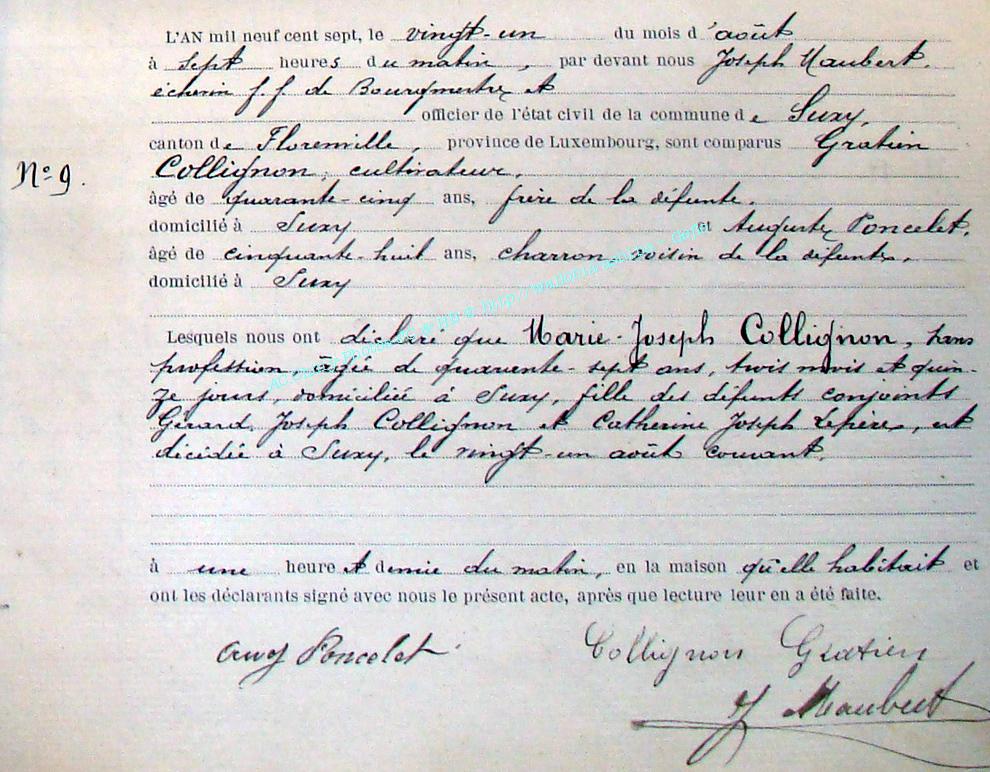 L'AN mil neuf cent sept, le vingt-un du mois d'août
à sept heures du matin, par devant nous Joseph Maubert,
échevin f.f. de Bourgmestre et
officier de l'état civil de la commune de Suxy,
canton de Florenville, province de Luxembourg, sont comparus Gratien
N° 9.
Collignon, cultivateur,
âgé de quarante-cinq ans, frère de la défunte,
domicilié à Suxy et Auguste Poncelet,
âgé de cinquante-huit ans, charron, voisin de la défunte,
domicilié à Suxy
Lesquels nous ont déclaré que Marie-Joseph Collignon, sans
profession, âgée de quarante-sept ans, trois mois et quin-
ze jours, domiciliée à Suxy, fille des défunts conjoints
Gérard Joseph Collignon et Catherine Joseph Lepère, est
décédée à Suxy, le vingt-un août courant,
à une heure et demie du matin, en la maison qu'elle habitait et
ont les déclarants signé avec nous le présent acte, après que lecture leur en a été faite.
Aug Poncelet Collignon Gratien
J Maubert